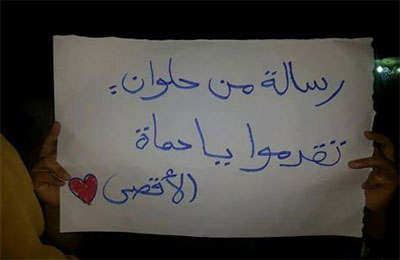 رسالة من حلوان :
تقدموا يا حماة
الأقصى